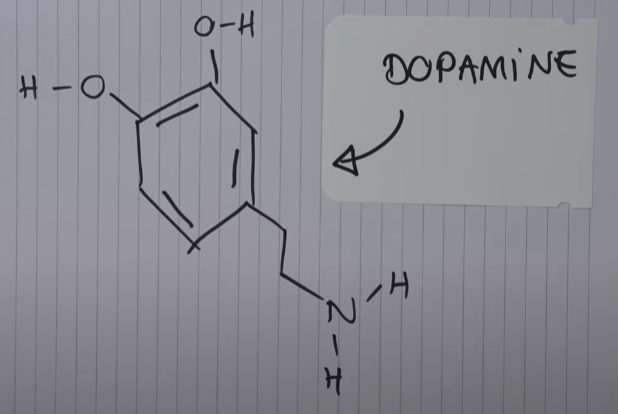 O-H
H-O
DOPAMiNE
N-H
H